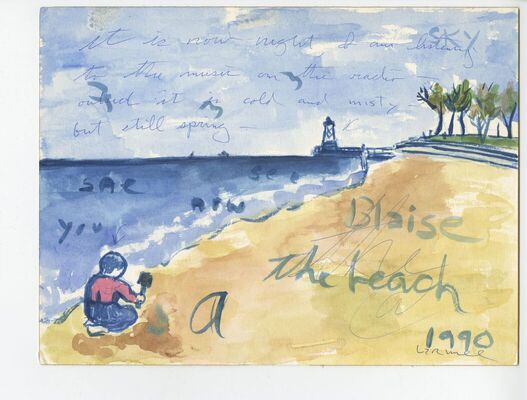 SKY
it is now night & am listening
to the music on the radio —
outside it is cold and misty
but still spring —
SAE
SEE
YOU
NOW
Blaise
the beach
a
1990